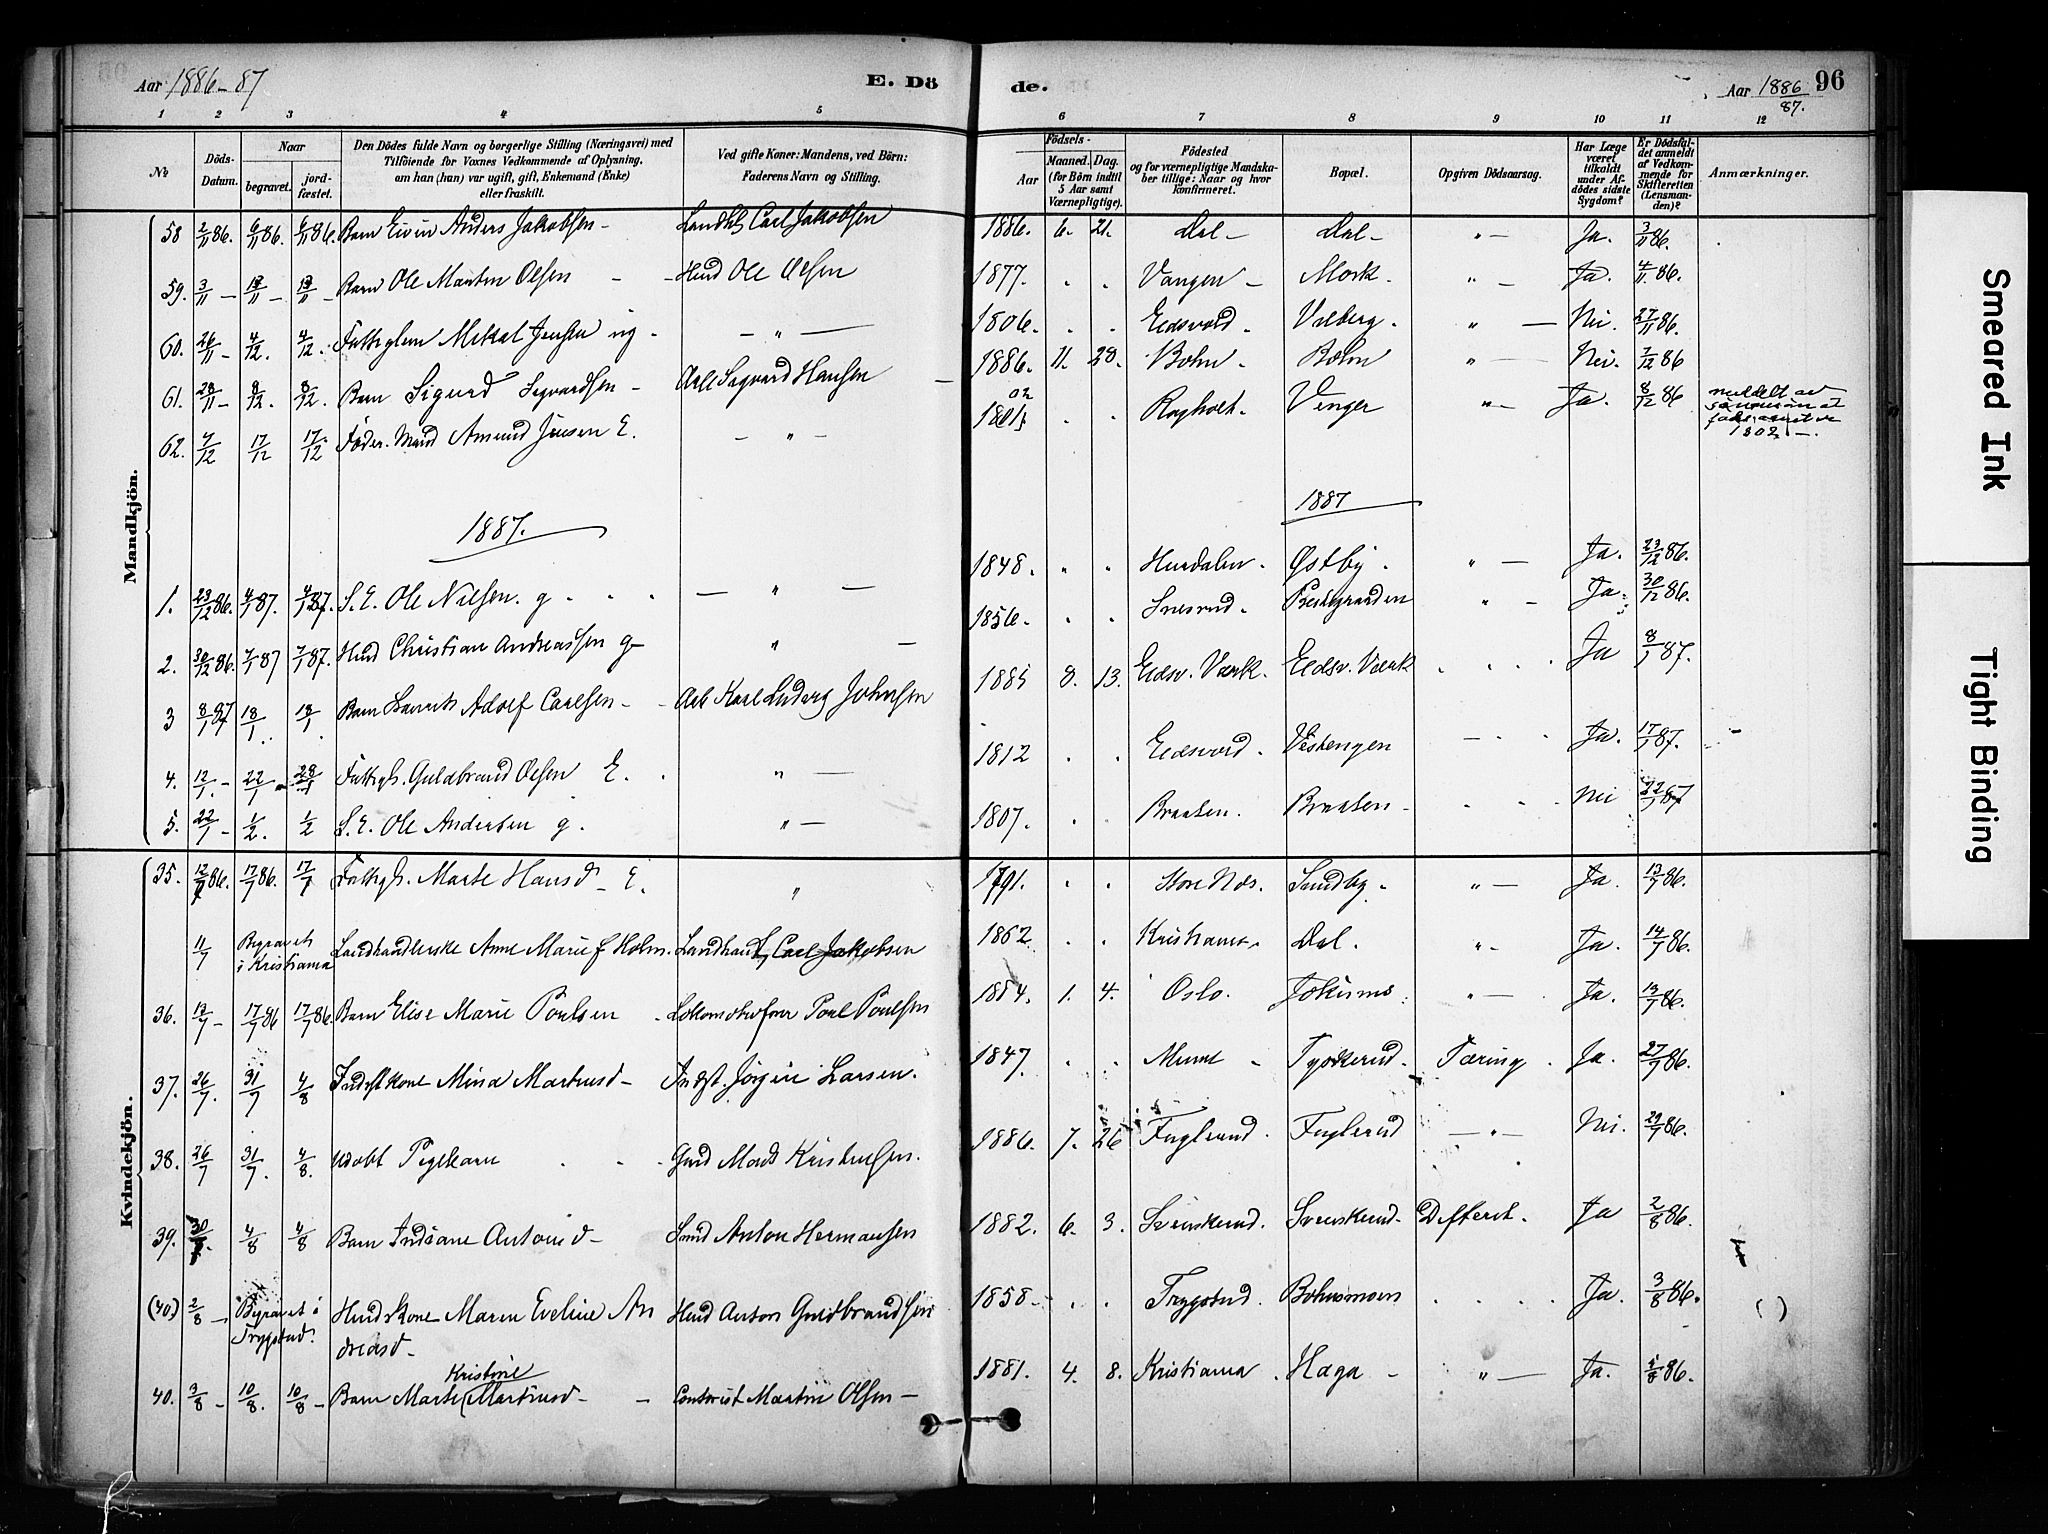 Aar 1886-87
E. Dö
de.
Aar 1886/87.
96
1 2 3 4 5
6 7 8 9 10 11 12
№
Döds-Datum.
Naar
begravet.
jord-fæstet.
Den Dödes fulde Navn og borgerlige Stilling (Næringsvei) med
Tilföiende for Voxnes Vedkommende af Oplysning,
om han (hun) var ugift, gift, Enkemand (Enke)
eller fraskilt.
Ved gifte Koner: Mandens, ved Börn:
Faderens Navn og Stilling.
Födsels-
Aar
Maaned. Dag.
(for Börn indtil
5 Aar samt
Værnepligtige).
Födested
og for værnepligtige Mandska-
ber tillige: Naar og hvor
konfirmeret.
Bopæl.
Opgiven Dödsaarsag.
Har Læge
været
tilkaldt
under Af-
dödes sidste
Sygdom?
Er Dödsfal-
det anmeldt
af Vedkom-
mende for
Skifteretten
(Lensman-
den)?
Anmærkninger.
Mandkjön.
58 2/11 86. 6/11 86. 6/11 86. Barn Eivin Anders Jakobsen - Landh. Carl Jakobsen 1886. 6. 21. Dal - Dal - " - Ja. 3/11 86.
59. 3/11 - 13/11 - 13/11 - Barn Ole Martin Olsen - Husd Ole Olsen 1877. Vangen - Mork. " - Ja. 4/11 86.
60. 26/11 - 4/12. 4/12. Fattiglem Mikal Jensen ug. - " - 1806. Eidsvold. Valberg. " - Nei. 27/11 86.
61. 28/11 - 8/12. 8/12. Barn Sigurd Sigvardsen - Arb Sigvard Hansen 1886. 11. 28. Bohn. Bohn " - Nei. 7/12 86
62. 7/12 17/12 17/12 Föder. Mand Amund Jensen E. - " - 02 1801 Rogholt. Vinger " - Ja. 8/12 86 1802 -
1887.
1887
1. 23/12 86. 4/1 87. 4/1 87. S. E. Ole Nilsen. g. - " - 1848. Hurdalen. Østby. " - Ja. 23/12 86.
2. 30/12 86. 7/1 87 7/1 87. Husd Christian Andreassen g - " - 1856. Præstegaarden " - Ja. 30/12 86.
3 8/1 87 18/1 18/1 Barn Laurits Adolf Carlsen - Arb Karl Ludvig Johnsen 1885 8. 13. Eidsv. Værk. Eidsv. Værk Ja 8/1 87.
4. 12/1 - 22/1 - Fattigh. Guldbrand Olsen E. " - 1812 Eidsvold. Vestengen - Ja. 17/1 87.
5. 22/1 - 1/2. 1/2 S. E. Ole Andersen g. " - 1807. Braaten. Braaten - Nei 22/1 87
Kvindekjön.
35. 12/7 86. 17/7 86. 17/7 Fattigh. Marte Hansd - E. " 1791. Store Næs. Sundby. " - Ja. 13/7 86.
11/7 Begravet i Kristiania Landhandlerske Anne Marie f Holm. Landhand. Carl Jakobsen 1862 Kristiania. Dal. " - Ja. 14/7 86.
36. 13/7 - 17/7 86 17/7 86. Barn Elise Marie Poulsen - Lokomotivförer Poul Poulsen 1884. 1. 4. Oslo. " - Ja. 13/7 86.
37. 26/7. 31/7 4/8 Indst kone Mina Martinsd - Indst. Jörgen Larsen. 1847. Minne - Tyskerud. Tæring. Ja. 27/7 86.
38. 26/7 31/7. 4/8. Udöbt Pigebarn Gmd Mads Kristensen. 1886. 7. 26 Fuglerud. Fuglerud - " - Nei. 29/7 86.
39. 30/7. 4/8 4/8 Barn Indiane Antonsd - Smd Anton Hermansen 1882. 6. 3. Svenskerud. Svenskerud - Difterit. Ja 2/8 86.
(40.) 2/8 - Begravet i Trygstad. Husd.kone Maren Eveline An Husd Anton Guldbrandsen 1858 - Trygstad. Bohnsmoen Ja. 3/8 86. ( )
dreasd -
Kristine
40. 3/8 - 10/8. 10/8 - Barn Marte (Martinsd - Contorist Martin Olsen - 1881. 4. 8. Kristiania. Haga - " - Ja. 4/8 86.
Smeared Ink
Tight Binding